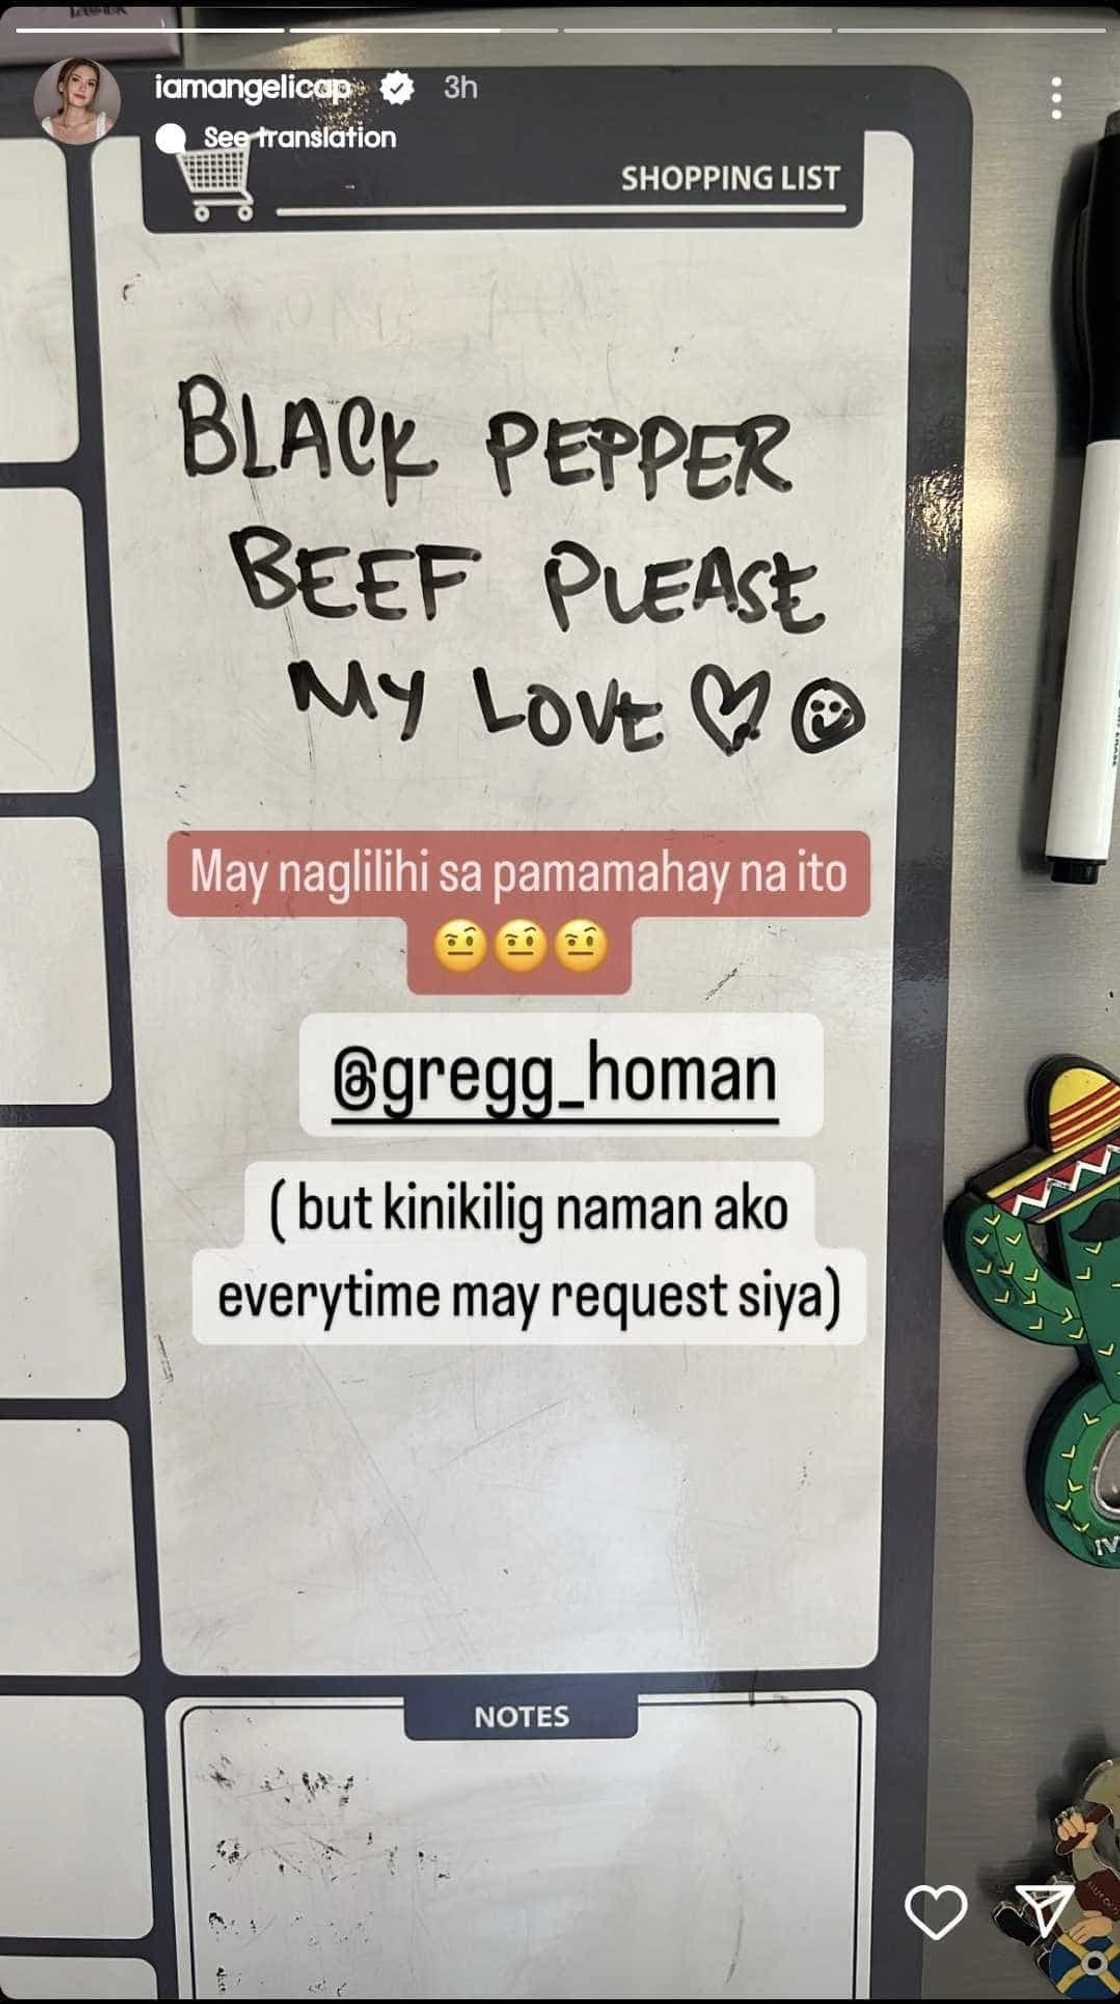 iamangelicap 3h
See translation
SHOPPING LIST
BLACK PEPPER
BEEF PLEASE
MY LOVE
May naglilihi sa pamamahay na ito
🤨🤨🤨
@gregg_homan
( but kinikilig naman ako
everytime may request siya)
NOTES